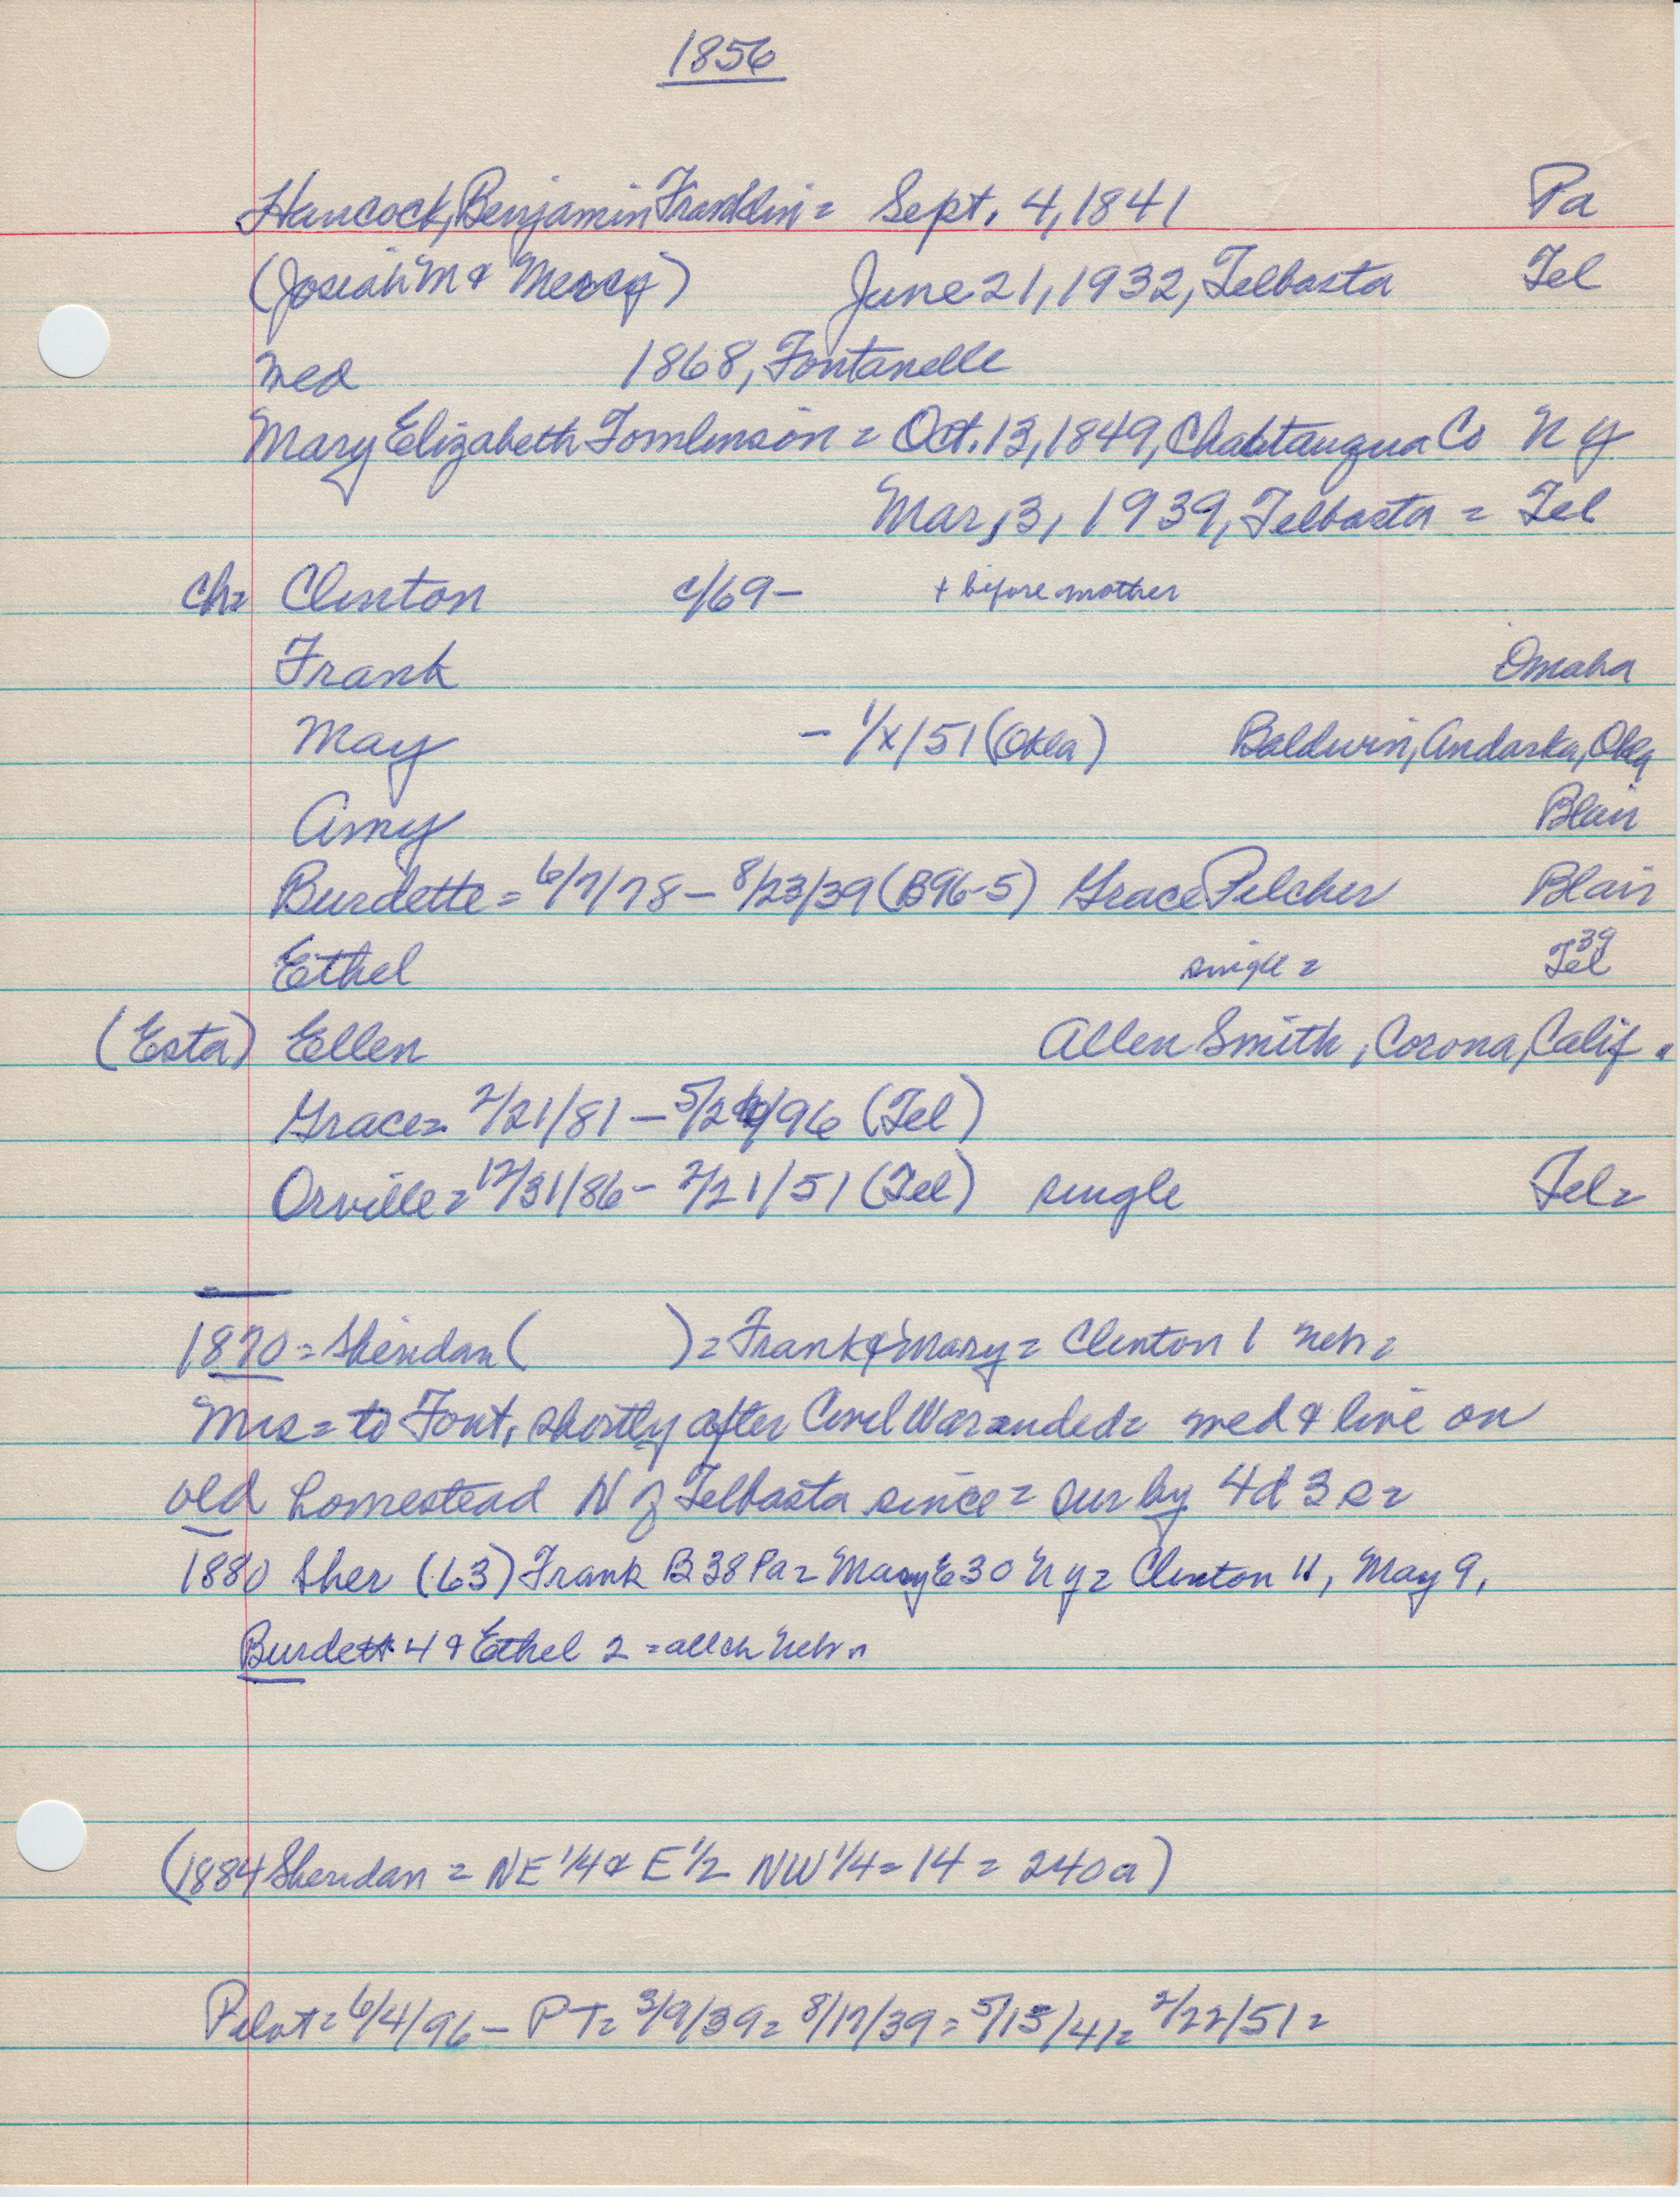 1856
Hancock, Benjamin Franklin = Sept. 4, 1841 Pa
(Josiah M & Mercy) June 21, 1932, Telbasta Tel
med 1868, Fontanelle
Mary Elizabeth Tomlinson = Oct. 13, 1849, Chautauqua Co N Y
Mar, 3, 1939, Telbasta = Tel
Ch = Clinton c/69 - + before mother
Frank Omaha
May - 1/x/51 (Okla) Baldwin, Andarka, Okla
Amy Blair
Burdette = 6/7/78 - 8/23/39 (B96-5) Grace Pilcher Blair
Ethel single = Tel 39
(Esta) Ellen Allen Smith, Corona, Calif.
Grace = 2/21/81 - 5/ /96 (Tel)
Orville = 12/31/86 - 2/21/51 (Tel) single Tel =
1870 = Sheridan ( ) = Frank & Mary = Clinton 1 Neb =
Mrs = to Font, shortly after Civil War ended = med & live on
old homestead N of Telbasta since = sur by 4d 3s =
1880 Sher (63) Frank B 38 Pa = Mary E 30 N Y = Clinton 11, May 9,
Burdett 4 & Ethel 2 = all ch Neb =
(1884 Sheridan = NE 1/4 & E 1/2 NW 1/4 = 14 = 240a)
Pilot = 6/4/96 - PT = 3/9/39 = 8/17/39 = 5/15/41 = 2/22/51 =